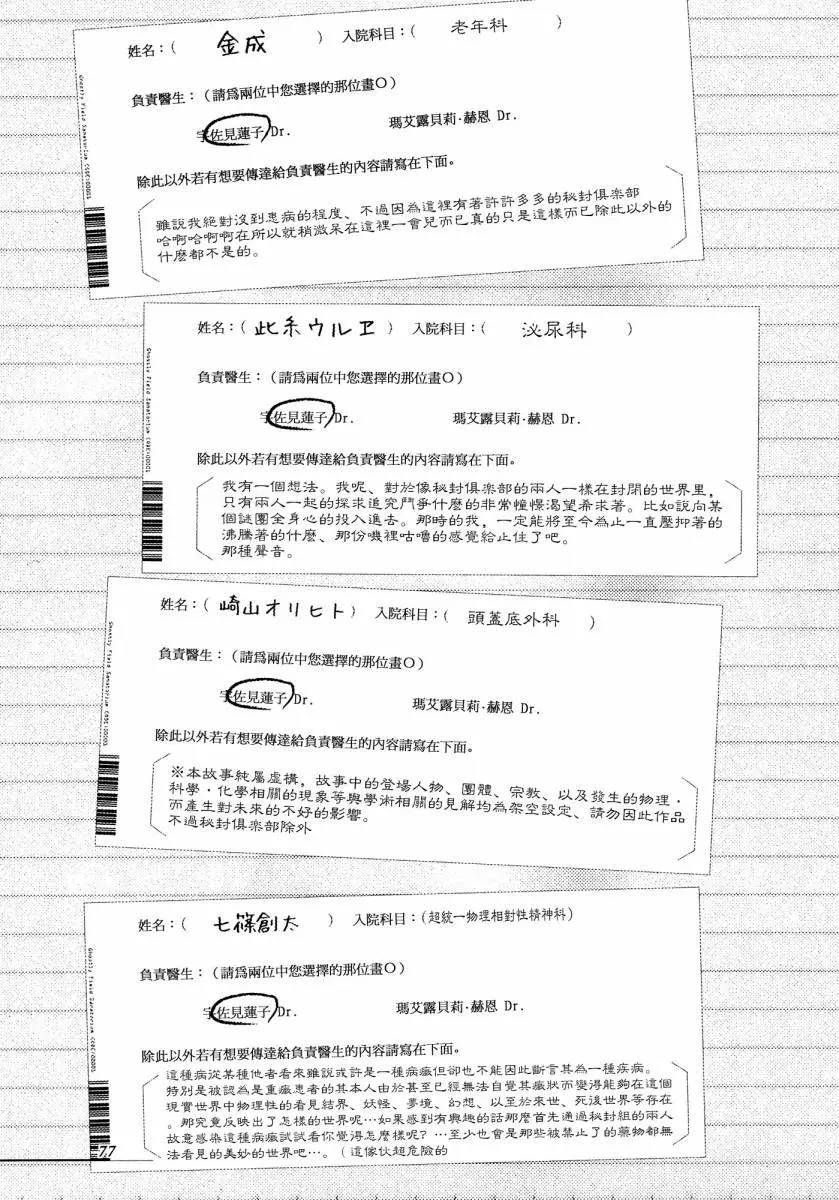 姓名：（ 金成 ） 入院科目：（ 老年科 ）
負責醫生：（請爲兩位中您選擇的那位畫O）
宇佐見蓮子 Dr. 瑪艾露貝莉·赫恩 Dr.
除此以外若有想要傳達給負責醫生的內容請寫在下面。
雖說我絕對沒到患病的程度、不過因為這裡有著許許多多的秘封俱楽部
哈啊哈啊啊在所以就稍微呆在這裡一會兒而已真的只是這樣而已除此以外的
什麼都不是的。
Ghostly Field Sanatorium
姓名：（ 此糸ウルヱ ） 入院科目：（ 泌尿科 ）
負責醫生：（請爲兩位中您選擇的那位畫O）
宇佐見蓮子 Dr. 瑪艾露貝莉·赫恩 Dr.
除此以外若有想要傳達給負責醫生的內容請寫在下面。
我有一個想法。我呢、對於像秘封俱楽部的兩人一樣在封閉的世界里，
只有兩人一起的探求追究鬥爭什麼的非常憧憬渴望希求著。比如說向某
個謎團全身心的投入進去。那時的我，一定能將至今為止一直壓抑著的
沸騰著的什麼、那份嘰裡咕嚕的感覺給止住了吧。
那種聲音。
Ghostly Field Sanatorium
姓名：（ 崎山オリヒト ） 入院科目：（ 頭蓋底外科 ）
負責醫生：（請爲兩位中您選擇的那位畫O）
宇佐見蓮子 Dr. 瑪艾露貝莉·赫恩 Dr.
除此以外若有想要傳達給負責醫生的內容請寫在下面。
※本故事純屬虛構，故事中的登場人物、團體、宗教、以及發生的物理·
科學·化學相關的現象等與學術相關的見解均為架空設定、請勿因此作品
而產生對未來的不好的影響。
不過秘封俱楽部除外
Ghostly Field Sanatorium
姓名：（ 七篠創太 ） 入院科目：（超統一物理相對性精神科）
負責醫生：（請爲兩位中您選擇的那位畫O）
宇佐見蓮子 Dr. 瑪艾露貝莉·赫恩 Dr.
除此以外若有想要傳達給負責醫生的內容請寫在下面。
這種病從某種他者看來雖說或許是一種病癥但卻也不能因此斷言其為一種疾病。
特別是被認為是重癥患者的其本人由於甚至已經無法自覺其癥狀而變得能夠在這個
現實世界中物理性的看見結界、妖怪、夢境、幻想、以至於來世、死後世界等存在
。那究竟反映出了怎樣的世界呢…如果感到有興趣的話那麼首先通過秘封組的兩人
故意感染這種病癥試試看你覺得怎麼樣呢？…至少也會是那些被禁止了的藥物都無
法看見的美妙的世界吧…。（這傢伙超危險的
Ghostly Field Sanatorium
77